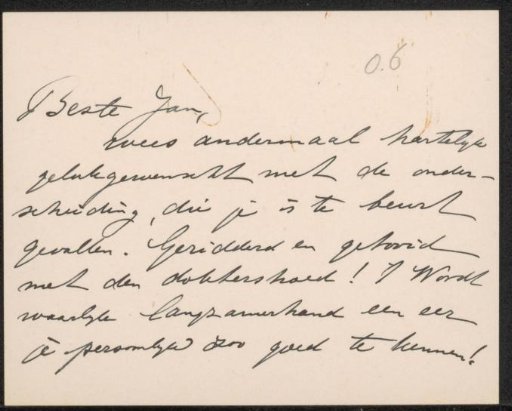 0.6
Beste Jan,
wees andermaal hartelijk
gelukgewenscht met de onder-
scheiding, die je is te beurt
gevallen. Geridderd en getooid
met den doktershoed! 't Wordt
waarlijk langzamerhand een eer
je persoonlijk zoo goed te kennen!